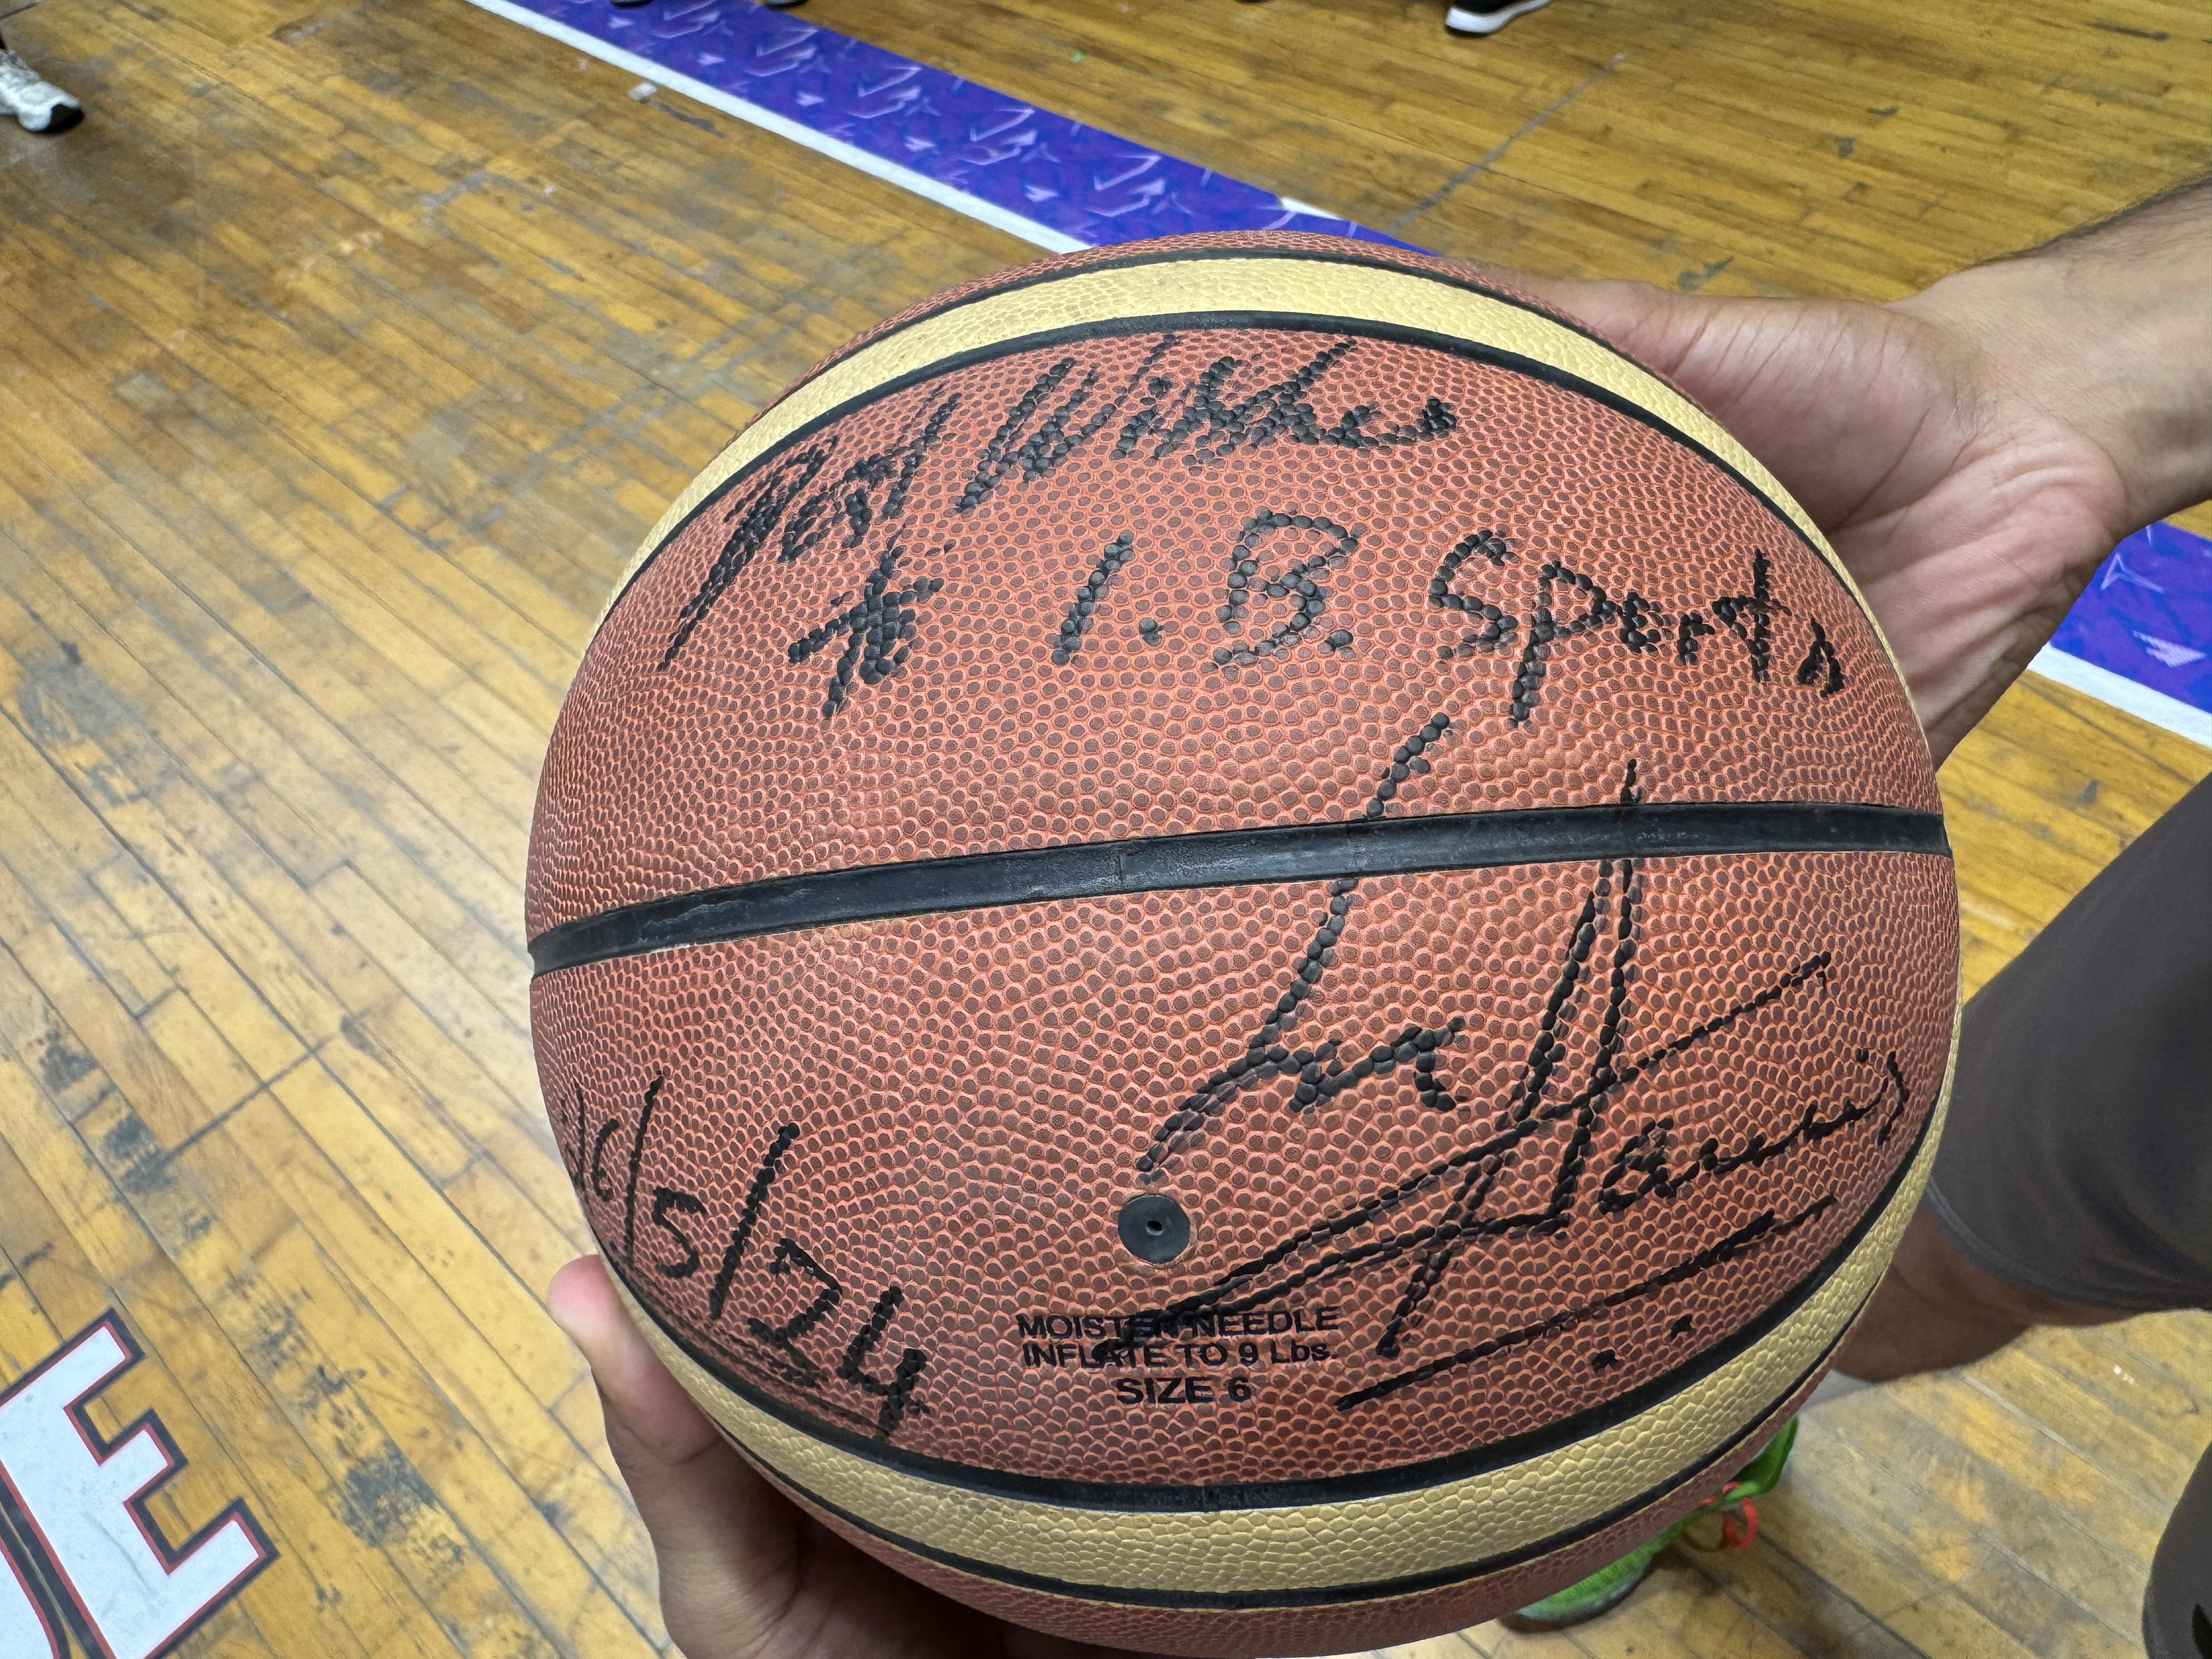 Best Wishes
to I.B. Sports
10/5/24
MOISTEN NEEDLE
INFLATE TO 9 Lbs.
SIZE 6
E